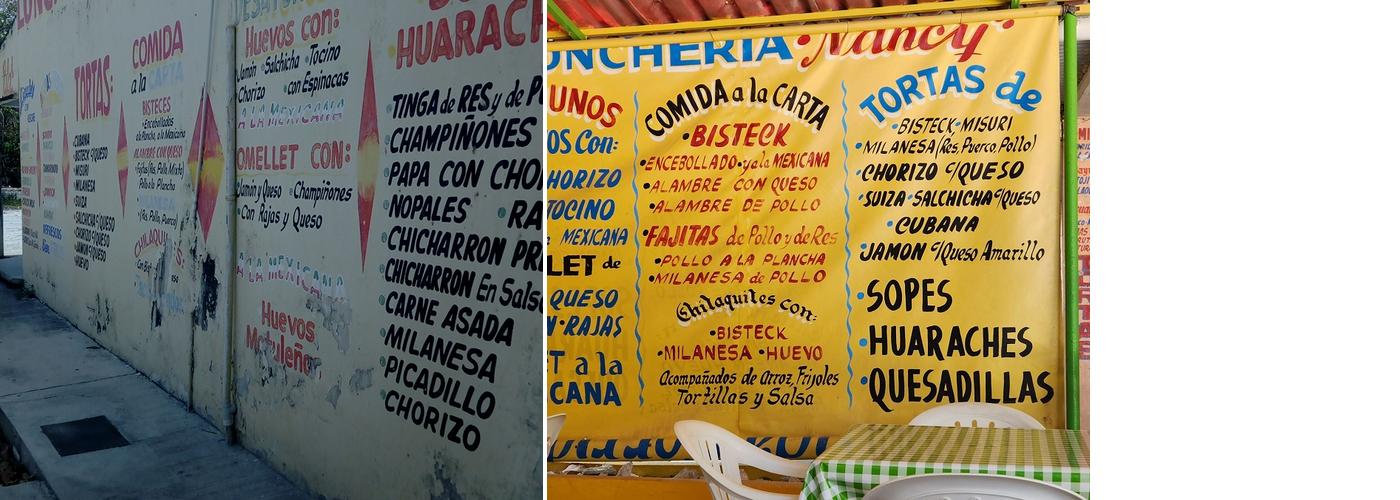 TORTAS:
CUBANA
BISTECK C/QUESO
MISURI
MILANESA
SUIZA
SALCHICHA C/QUESO
CHORIZO C/QUESO
JAMON C/QUESO
HUEVO
COMIDA
a la CARTA
BISTECES
Encebollados
a la Plancha, a la Mexicana
ALAMBRE CON QUESO
Fajitas (Res, Pollo Mixto)
Pollo a la Plancha
MILANESA
(Res, Pollo, Puerco)
Huevos con:
Jamón Salchicha Tocino
Chorizo con Espinacas
A LA MEXICANA
OMELLET CON:
Jamón y Queso Champiñones
Con Rajas y Queso
A LA MEXICANA
Huevos
HUARACH
TINGA de RES y de P
CHAMPIÑONES
PAPA CON CHO
NOPALES RA
CHICHARRON PR
CHICHARRON En Salsa
CARNE ASADA
MILANESA
PICADILLO
CHORIZO
ONCHERIA Nancy
UNOS
OS Con:
HORIZO
TOCINO
MEXICANA
LET de
QUESO
N RAJAS
T a la
CANA
COMIDA a la CARTA
•BISTECK
•ENCEBOLLADO •y a la MEXICANA
•ALAMBRE CON QUESO
•ALAMBRE DE POLLO
•FAJITAS de Pollo y de Res
•POLLO A LA PLANCHA
•MILANESA de POLLO
Chilaquiles con:
•BISTECK
•MILANESA •HUEVO
Acompañados de Arroz, Frijoles
Tortillas y Salsa
TORTAS de
•BISTECK •MISURI
•MILANESA (Res, Puerco, Pollo)
•CHORIZO C/QUESO
•SUIZA •SALCHICHA C/QUESO
•CUBANA
•JAMON C/Queso Amarillo
•SOPES
•HUARACHES
•QUESADILLAS